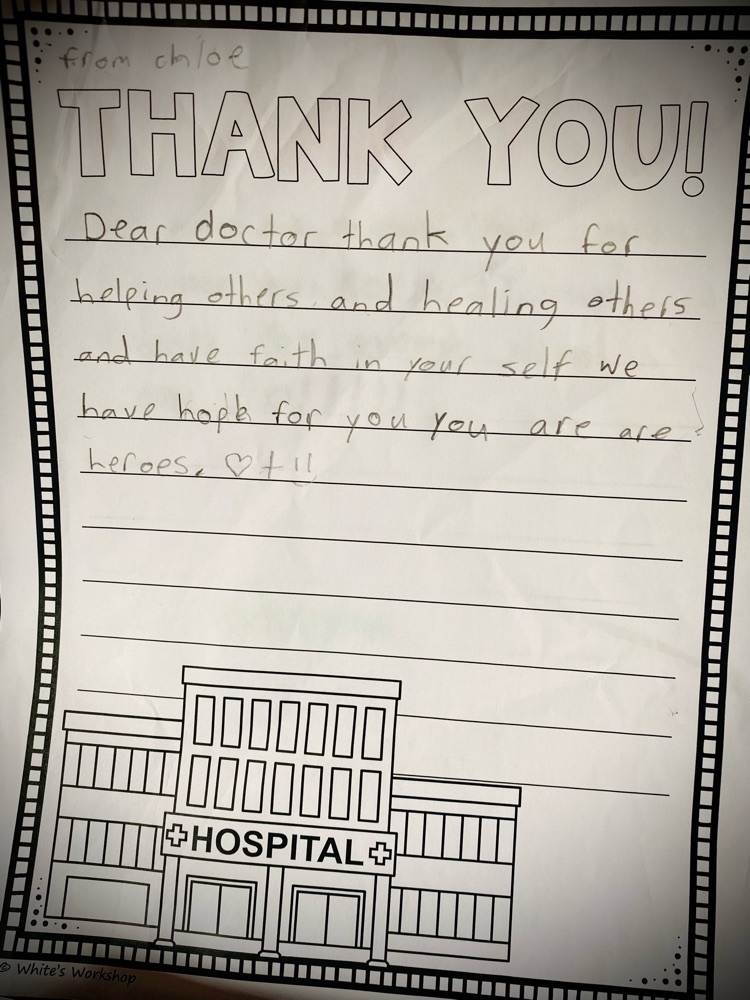 from chloe
THANK YOU!
Dear doctor thank you for
helping others and healing others
and have faith in your self we
have hope for you you are are
heroes. ♡+!!
HOSPITAL
© White's Workshop